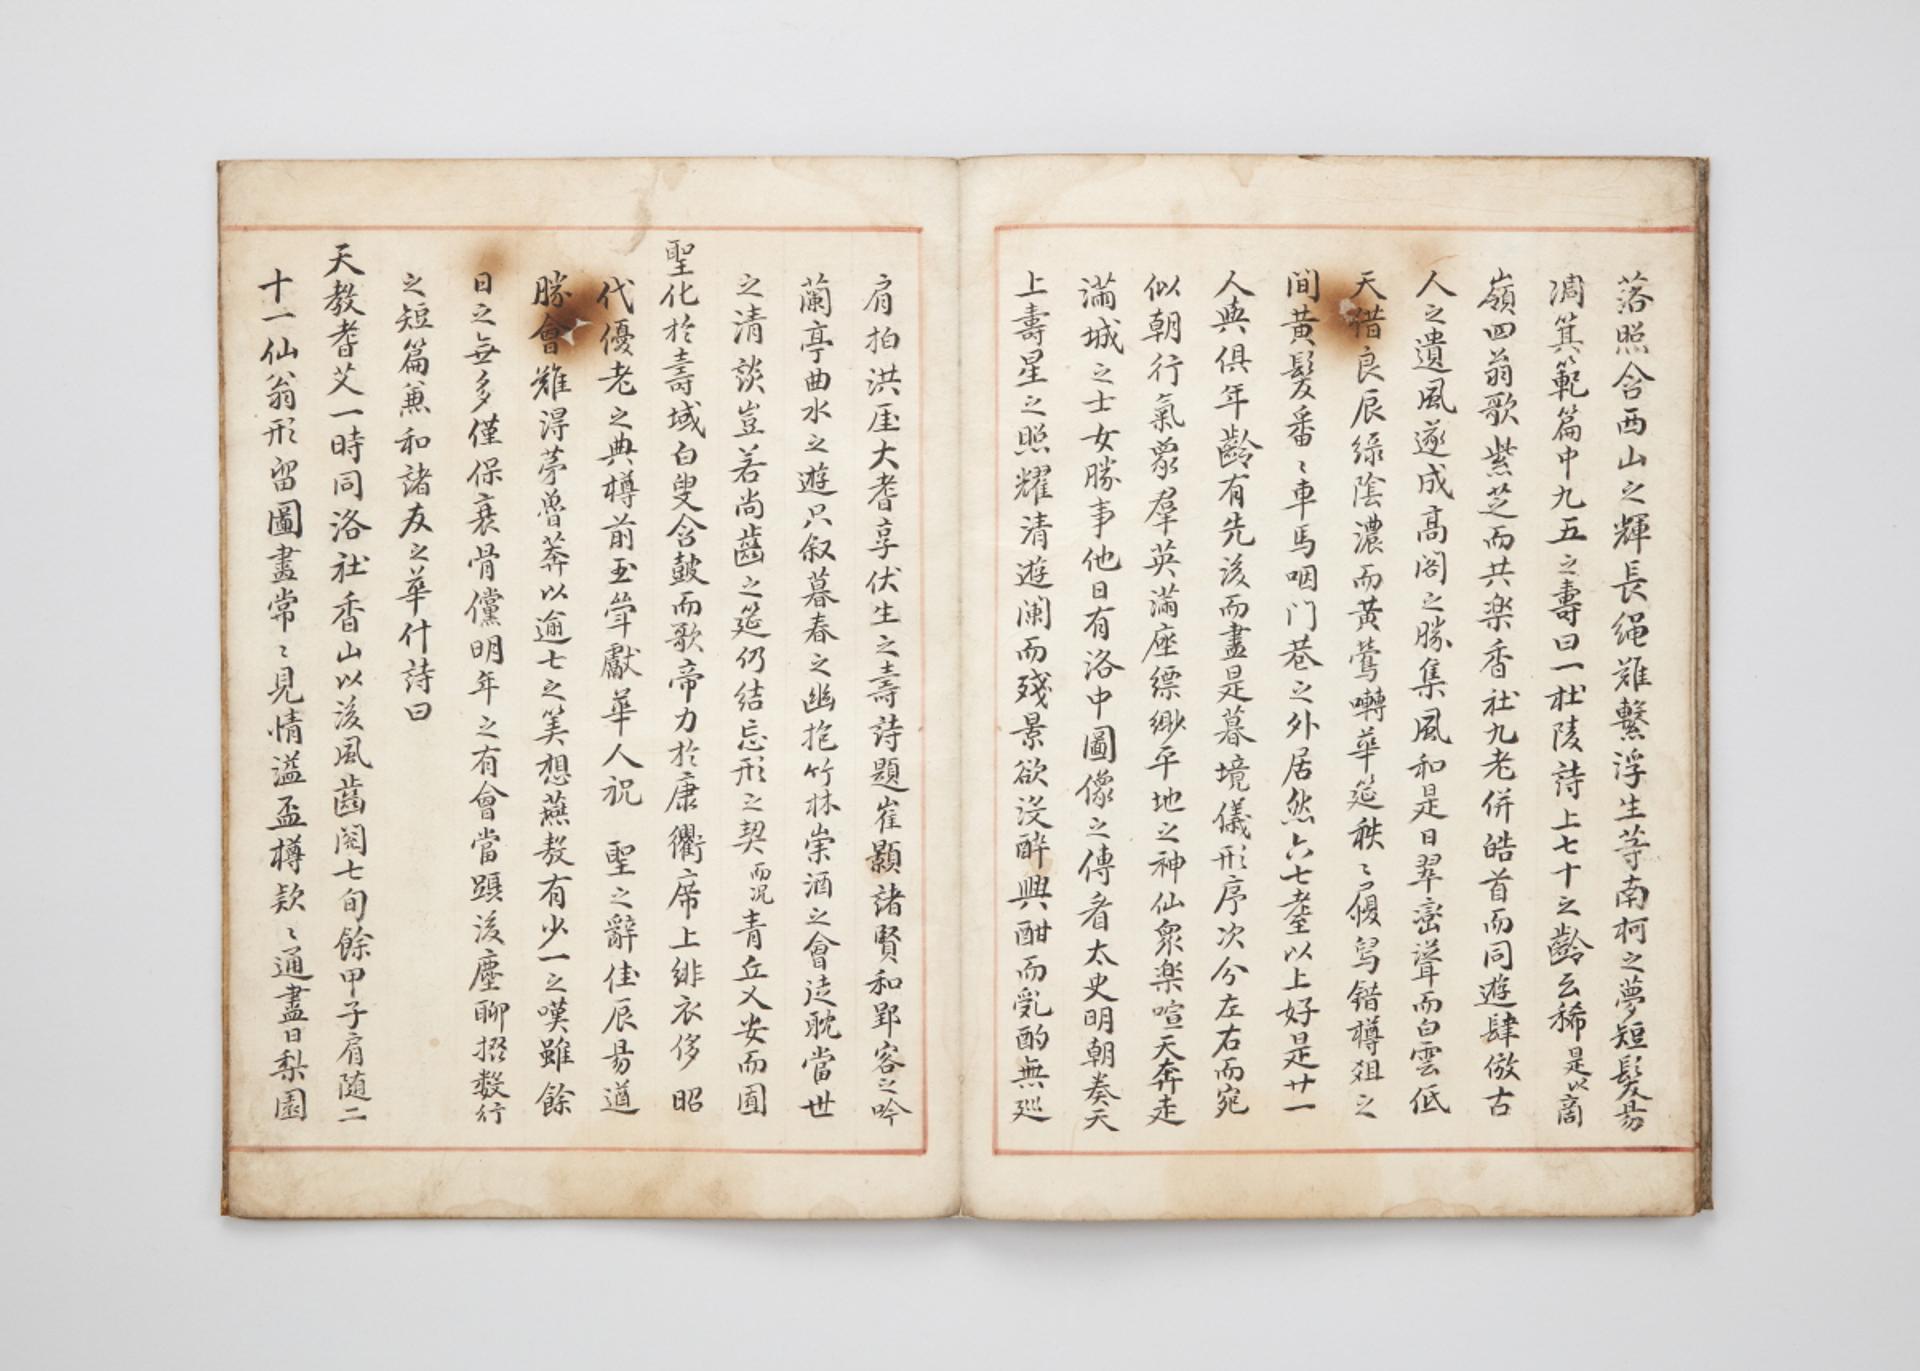 落照含西山之輝長繩難繫浮生等南柯之夢短髮易
凋箕範篇中九五之壽曰一杜陵詩上七十之齡云稀是以商
嶺四翁歌紫芝而共樂香社九老併皓首而同遊肆倣古
人之遺風遂成高閣之勝集風和是日翠巒聳而白雲低
天借良辰綠陰濃而黃鶯囀華筵秩〻履舃錯樽俎之
間黃髮番〻車馬咽門巷之外居然六七耋以上好是廿一
人與俱年齡有先後而盡是暮境儀形序次分左右而宛
似朝行氣象羣英滿座縹緲平地之神仙衆樂喧天奔走
滿城之士女勝事他日有洛中圖像之傳看太史明朝奏天
上壽星之照耀清遊闌而殘景欲沒醉興酣而亂酌無巡
肩拍洪厓大耆享伏生之壽詩題崔顥諸賢和郢客之吟
蘭亭曲水之遊只叙暮春之幽抱竹林崇酒之會徒耽當世
之清談豈若尚齒之筵仍結忘形之契而况青丘乂安而囿
聖化於壽域白叟含鼓而歌帝力於康衢席上緋衣侈昭
代優老之典樽前玉斝獻華人祝聖之辭佳辰易遒
勝會難得茅魯莽以逾七之筭想燕敖有少一之嘆雖餘
日之無多僅保衰骨儻明年之有會當躡後塵聊掇數行
之短篇兼和諸友之華什詩曰
天敎耆艾一時同洛社香山以後風齒閱七旬餘甲子肩隨二
十一仙翁形留圖畫常〻見情溢盃樽欵〻通盡日梨園